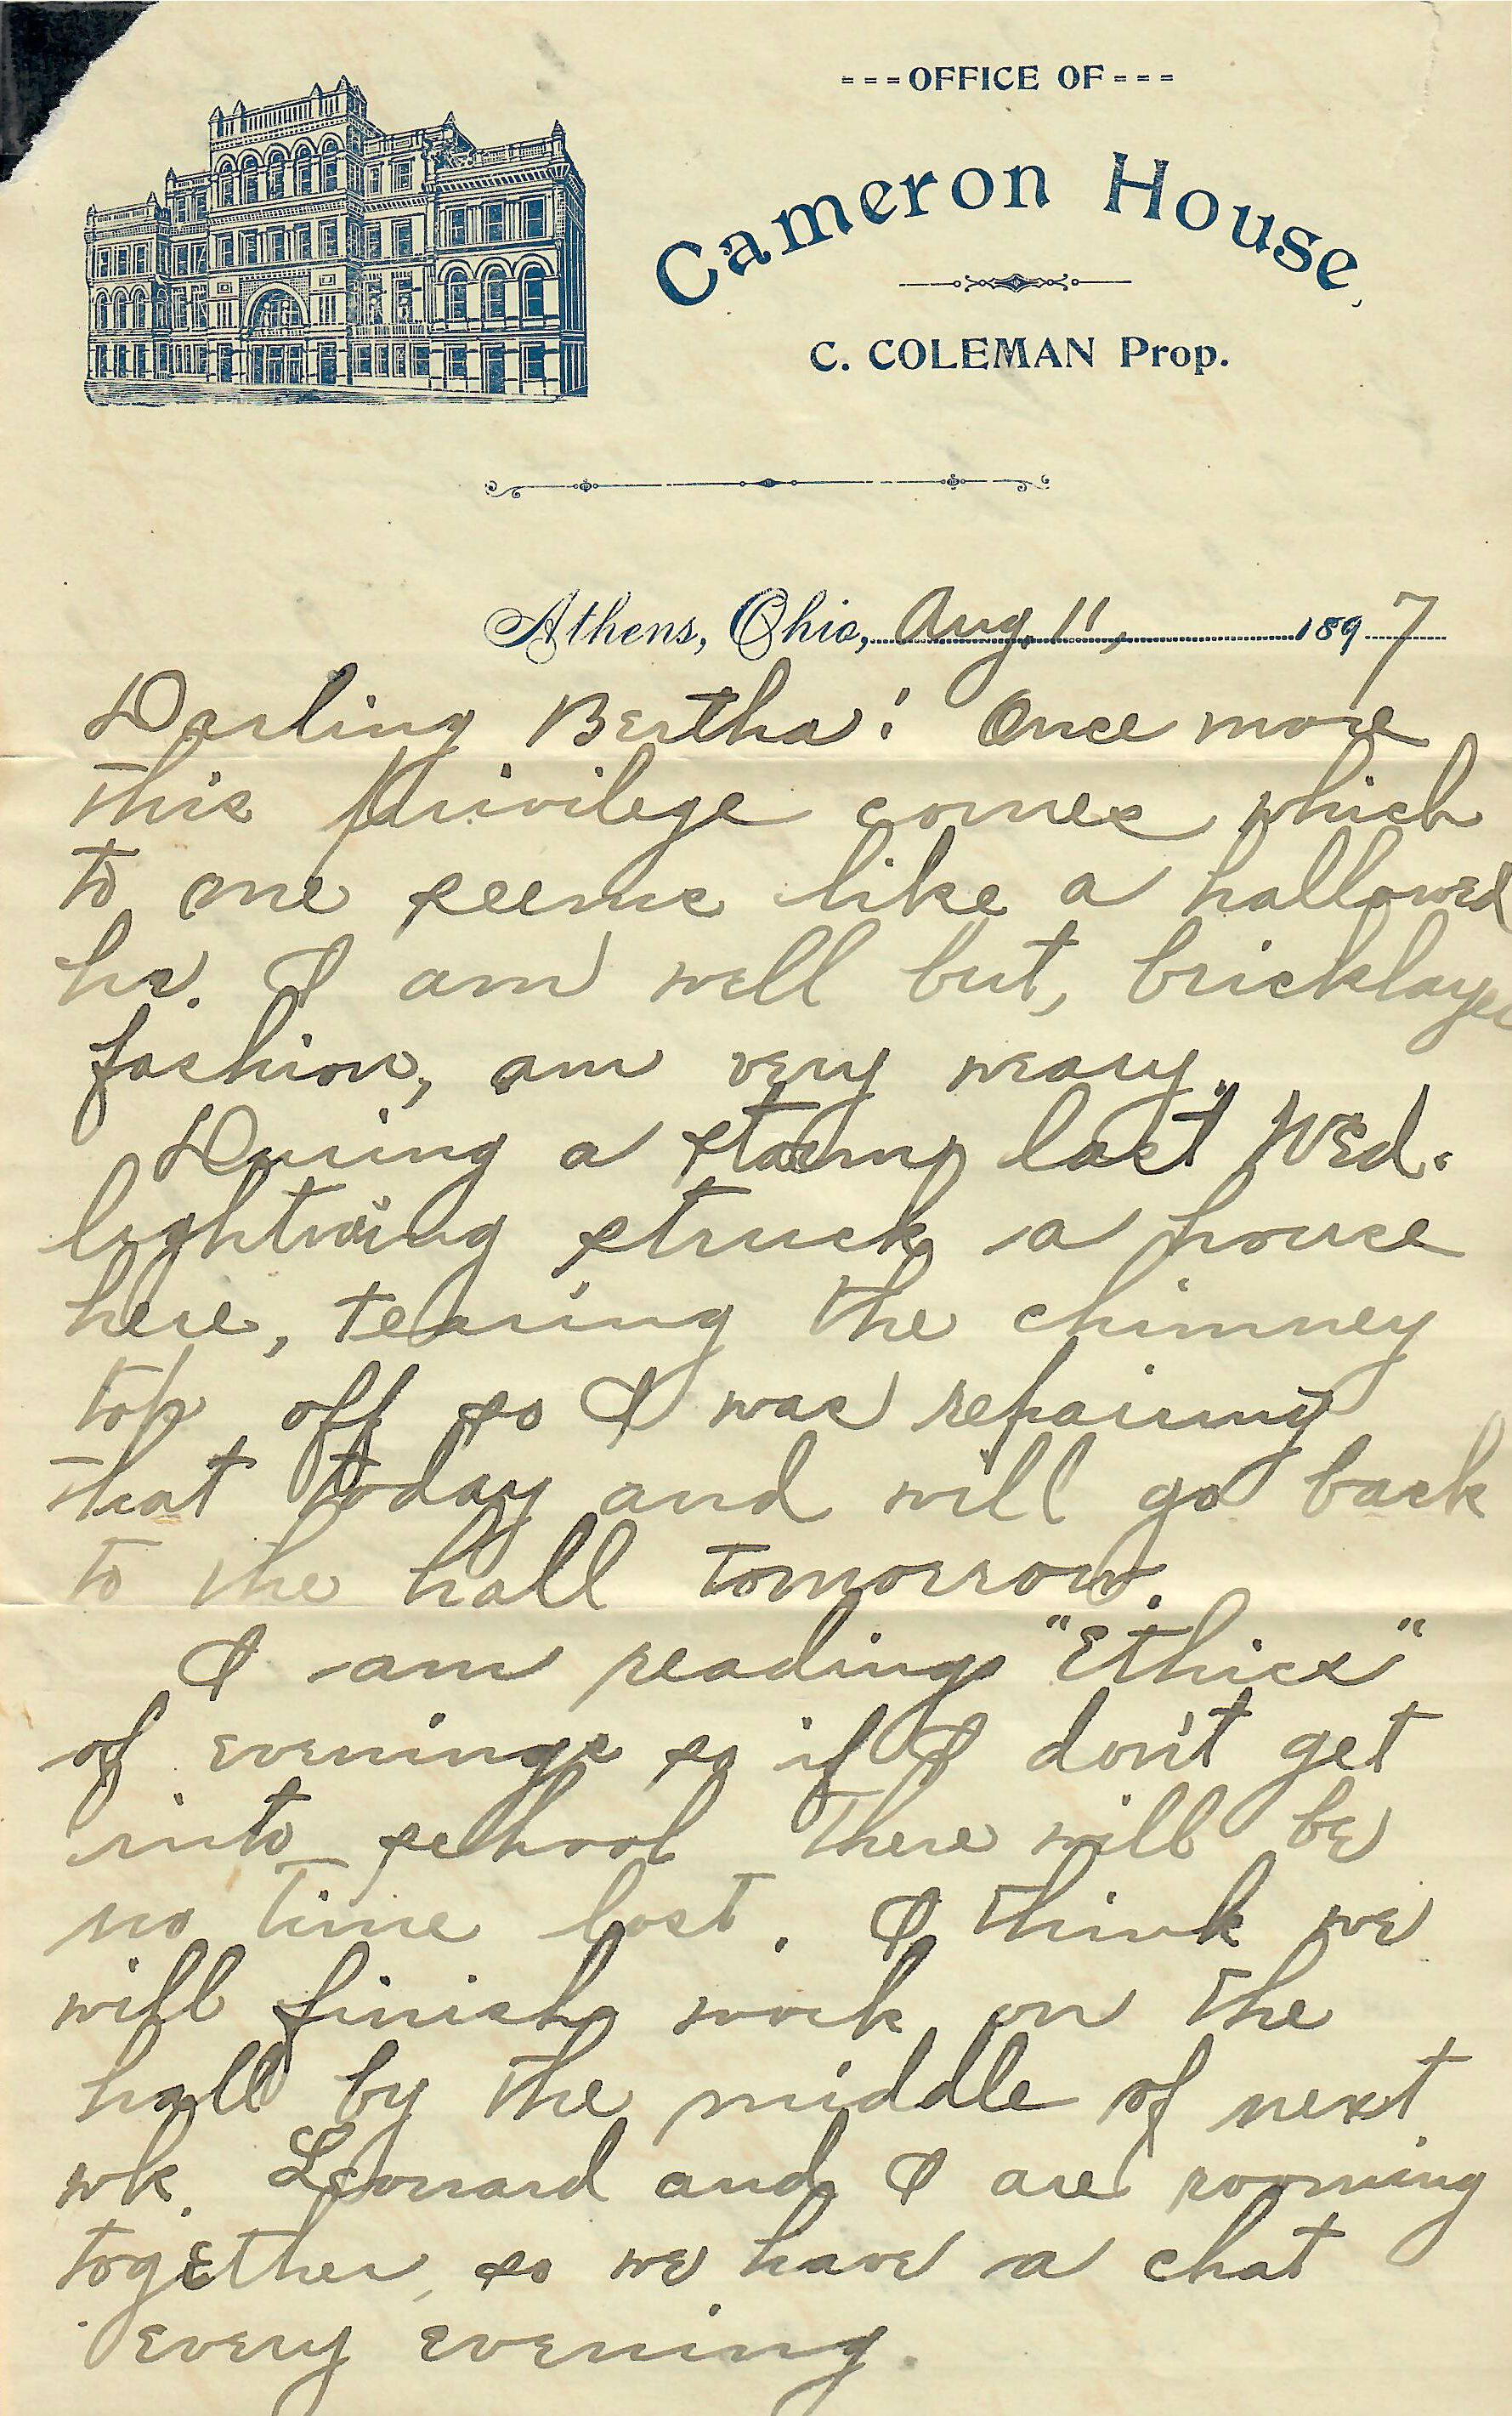 ---OFFICE OF---
Cameron House,
C. COLEMAN Prop.
Athens, Ohio, Aug. 11, 1897
Darling Bertha: Once more
this privilege comes which
to me seems like a hallowed
hr. I am well but, bricklayer
fashion, am very weary.
During a storm last Wed.
lightning struck a house
here, tearing the chimney
top off so I was repairing
that today and will go back
to the hall tomorrow.
I am reading "Ethics"
of evenings so if I don't get
into school there will be
no time lost. I think we
will finish work on the
hall by the middle of next
wk. Leonard and I are rooming
together, so we have a chat
every evening.